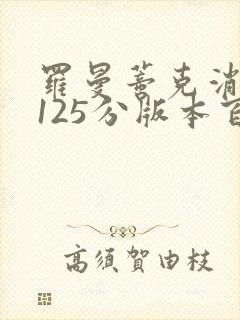 羅曼蒂克消
125分版本百
高須賀由枝